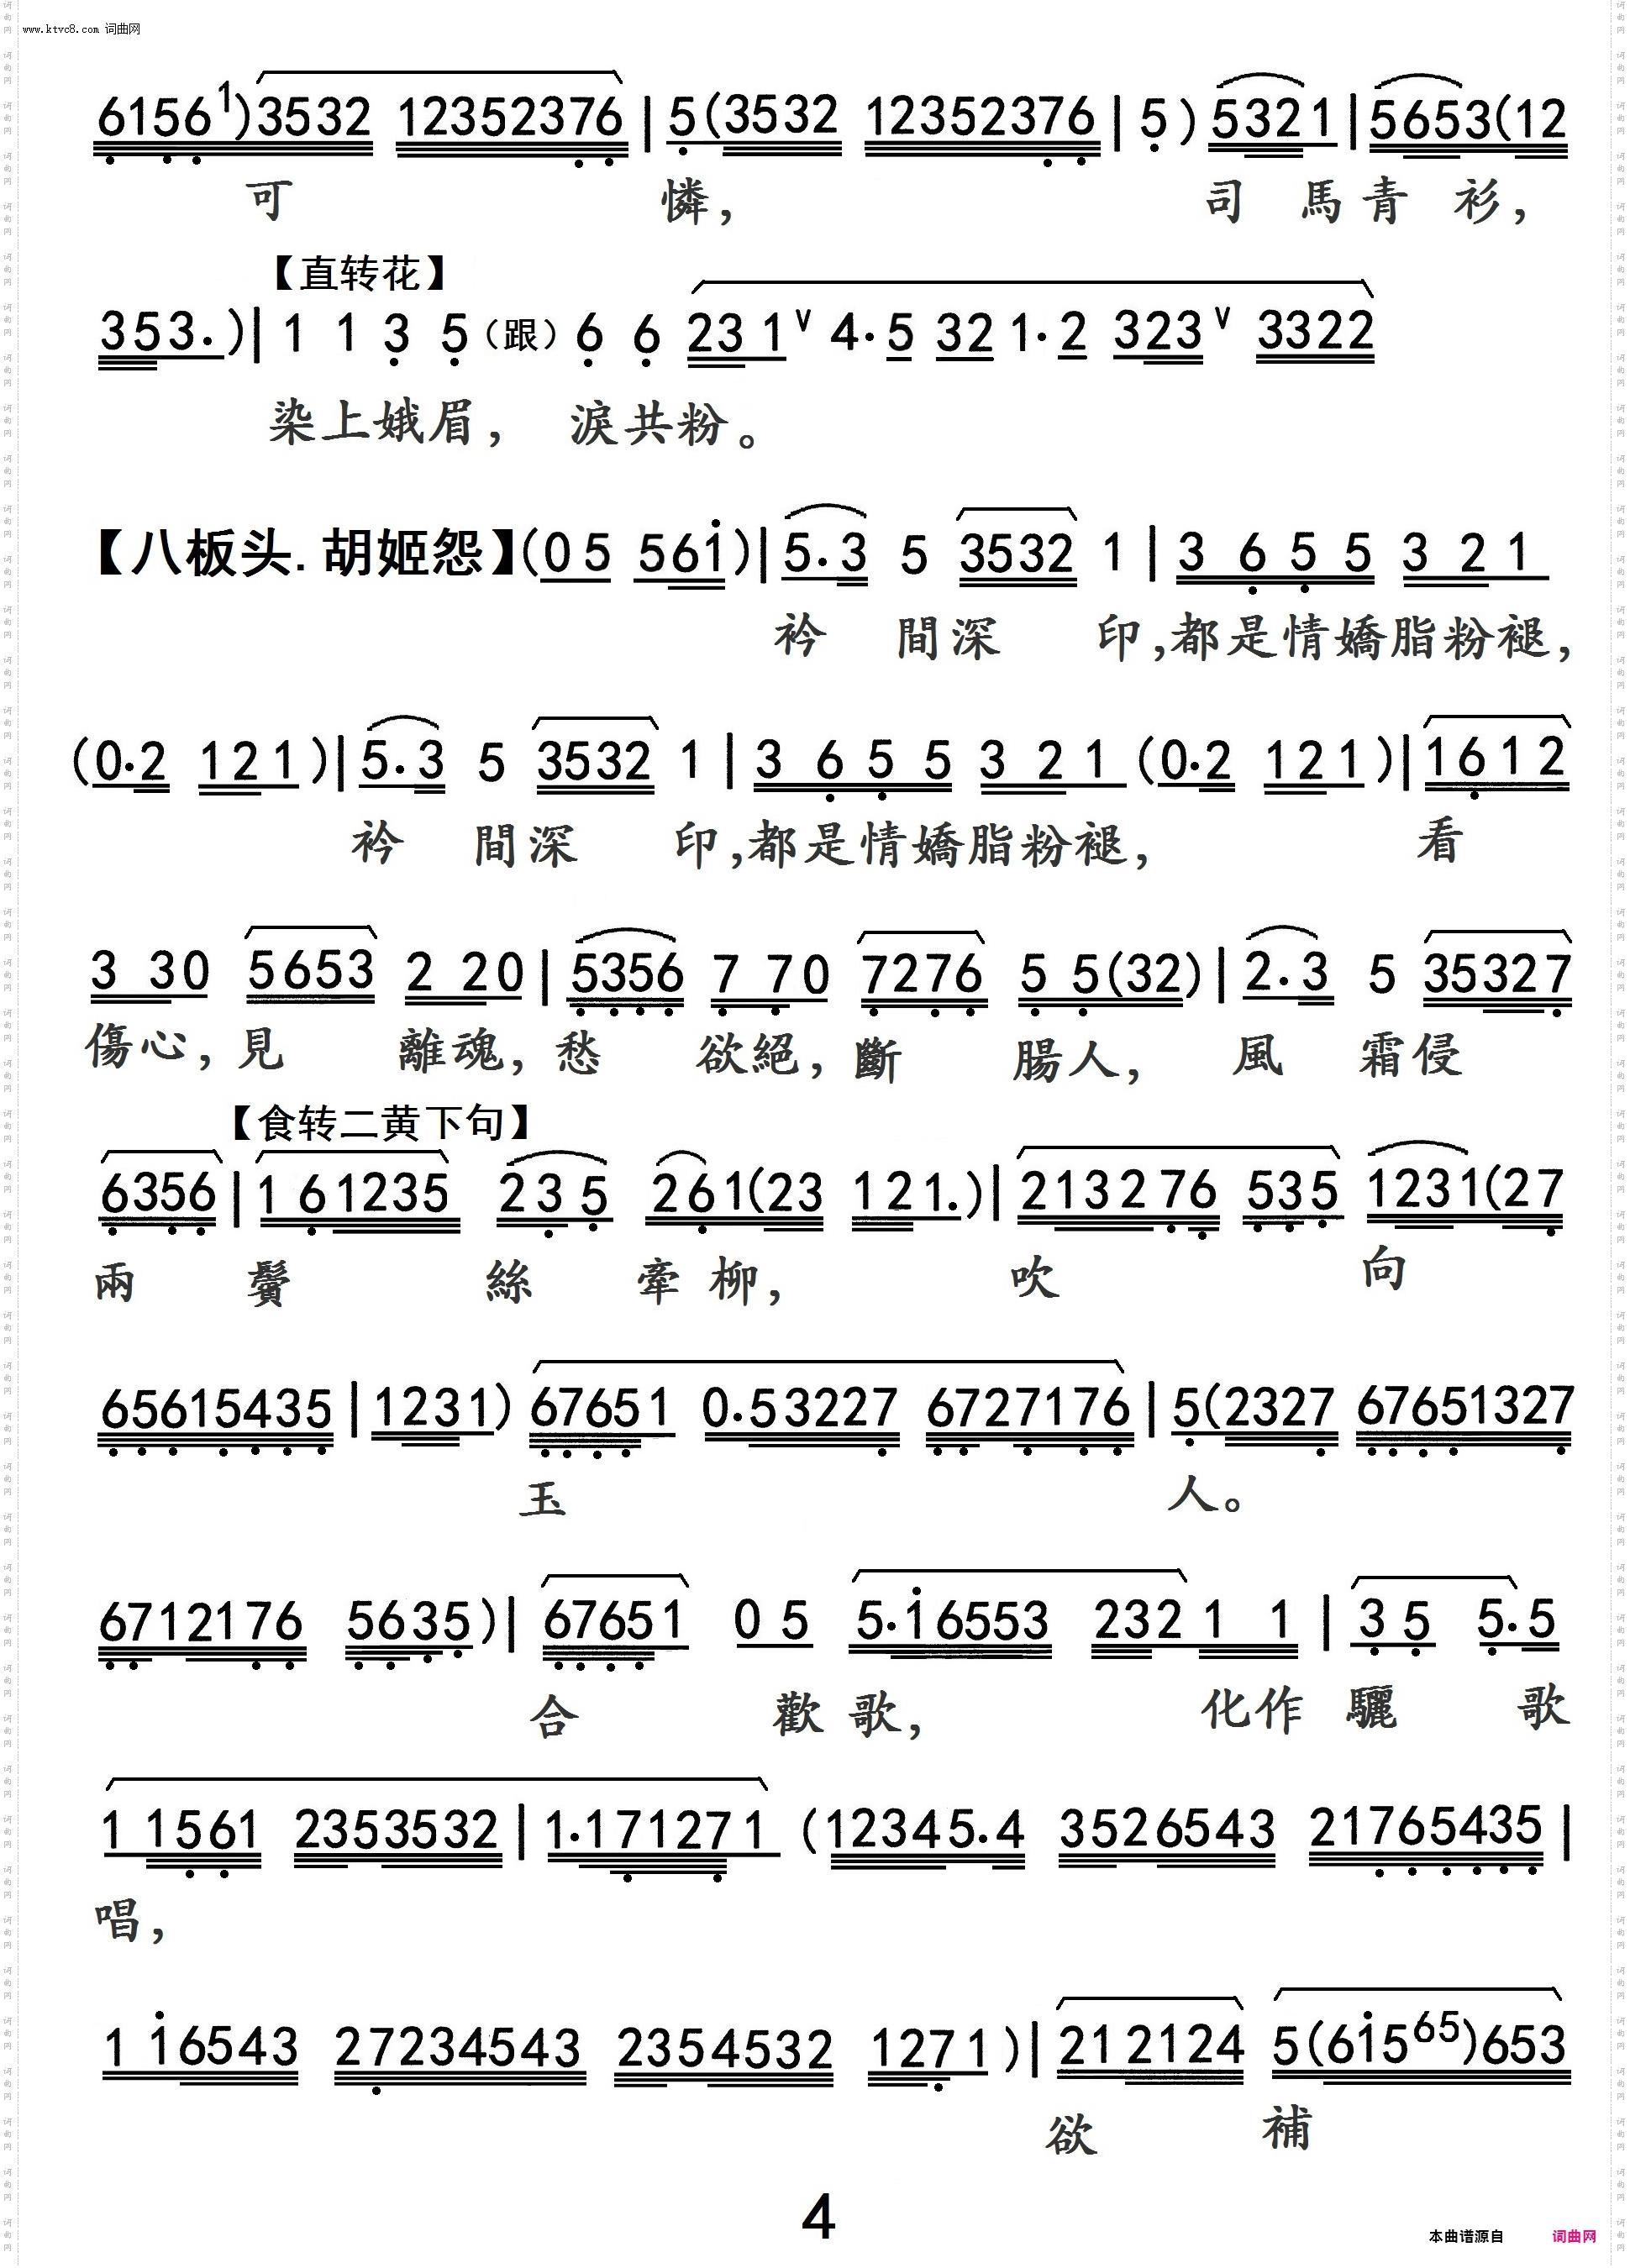 www.ktvc8.com 词曲网
6156 1)3532 12352376 | 5(3532 12352376 | 5) 5321 | 5653(12
可 憐， 司 馬 青 衫，
【直转花】
353.)| 1 1 3 5 (跟) 6 6 231 ∨ 4·5 321·2 323 ∨ 3322
染上娥眉， 淚共粉。
【八板头.胡姬怨】(05 561)| 5.3 5 3532 1 | 3 6 5 5 3 2 1
衿 間深 印，都是情嬌脂粉褪，
(0·2 121)| 5.3 5 3532 1 | 3 6 5 5 3 2 1 (0·2 121)| 1612
衿 間深 印，都是情嬌脂粉褪， 看
3 30 5653 2 20 | 5356 7 70 7276 5 5(32)| 2.3 5 35327
傷心，見 離魂，愁 欲絕，斷 腸人， 風 霜侵
【食转二黄下句】
6356 | 161235 235 261(23 121.)| 2132 76 535 1231(27
兩 鬢 絲 牽 柳， 吹 向
65615435 | 1231) 67651 0.53227 6727176 | 5(2327 67651327
玉 人。
6712176 5635)| 67651 05 5·16553 2321 1 | 3 5 5.5
合 歡歌， 化作 驪 歌
1 1561 2353532 | 1·171271 (12345.4 3526543 21765435 |
唱，
1 16543 27234543 2354532 1271)| 212124 5(615 65)653
欲 補
4
本曲谱源自 词曲网